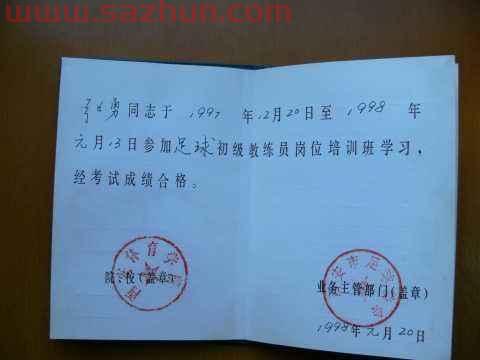 www.sazhun.com
勇同志于 1997 年 12月 20 日至 1998 年
元月 13 日参加足球初级教练员岗位培训班学习，
经考试成绩合格。
院、校（盖章）
业务主管部门（盖章）
1998年元月20日